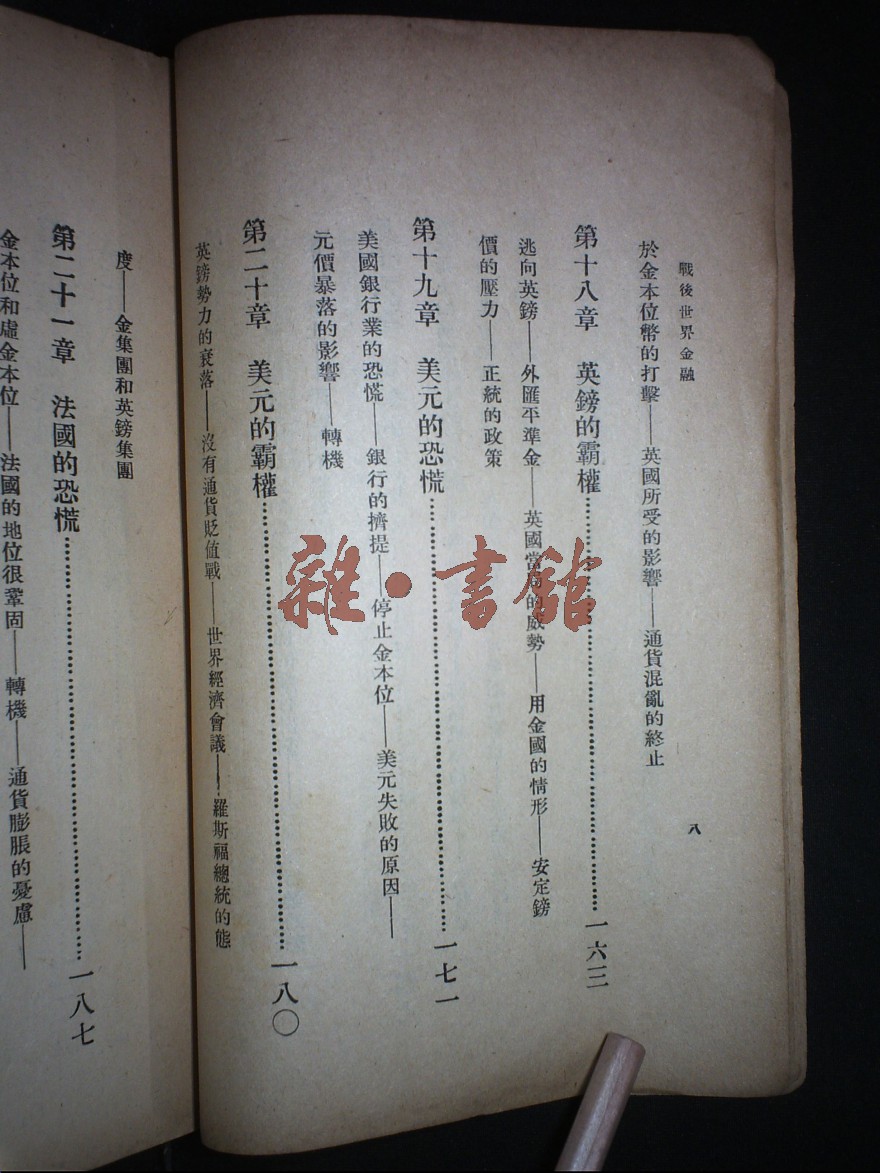 戰後世界金融
八
於金本位幣的打擊——英國所受的影響——通貨混亂的終止
第十八章 英鎊的霸權…………一六三
逃向英鎊——外匯平準金——英國當局的威勢——用金國的情形——安定鎊
價的壓力——正統的政策
第十九章 美元的恐慌…………一七一
美國銀行業的恐慌——銀行的擠提——停止金本位——美元失敗的原因——
元價暴落的影響——轉機
第二十章 美元的霸權…………一八〇
英鎊勢力的衰落——沒有通貨貶值戰——世界經濟會議——羅斯福總統的態
度——金集團和英鎊集團
第二十一章 法國的恐慌…………一八七
金本位和虛金本位——法國的地位很鞏固——轉機——通貨膨脹的憂慮——
雜·書館